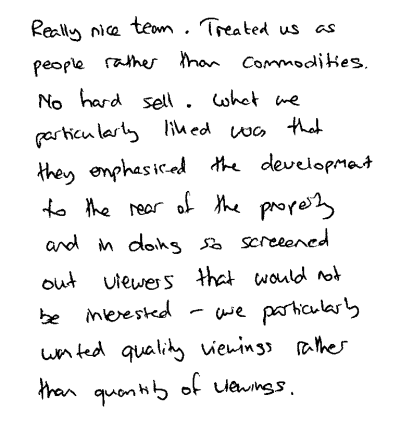 Really nice team. Treated us as
people rather than commodities.
No hard sell. What we
particularly liked was that
they emphasised the development
to the rear of the property
and in doing so screeened
out viewers that would not
be interested - we particularly
wanted quality viewings rather
than quantity of viewings.